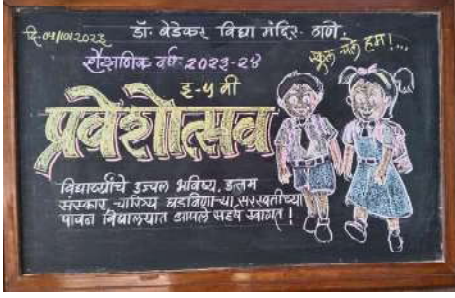 डॉ. बेडेकर विद्या मंदिर ठाणे.
शैक्षणिक वर्ष २०२३-२४
स्कूल चले हम!...
इ-५ वी
प्रवेशोत्सव
विद्यार्थ्यांचे उज्वल भविष्य, उत्तम
संस्कार, चारित्र्य घडविणाऱ्या सरस्वतीच्या
पावन विद्यालयात आपले सहर्ष स्वागत!